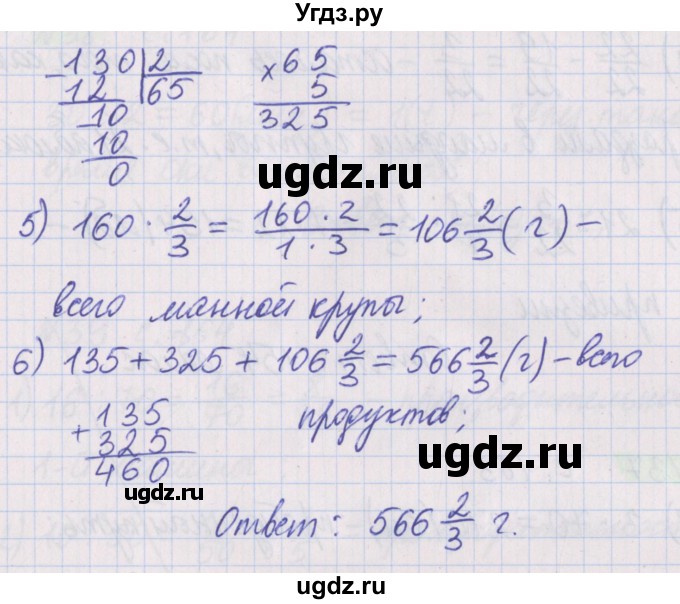 Угдз.ру
- 130 | 2
12 65
10
10
0
× 65
5
325
ugdz.ru
5) 160 · 2/3 = 160 · 2 / 1 · 3 = 106 2/3 (г) –
ugdz.ru
всего манной крупы;
6) 135 + 325 + 106 2/3 = 566 2/3 (г) – всего
продуктов;
+ 135
325
460
ugdz.ru
ugdz.ru
Ответ: 566 2/3 г.
ugdz.ru